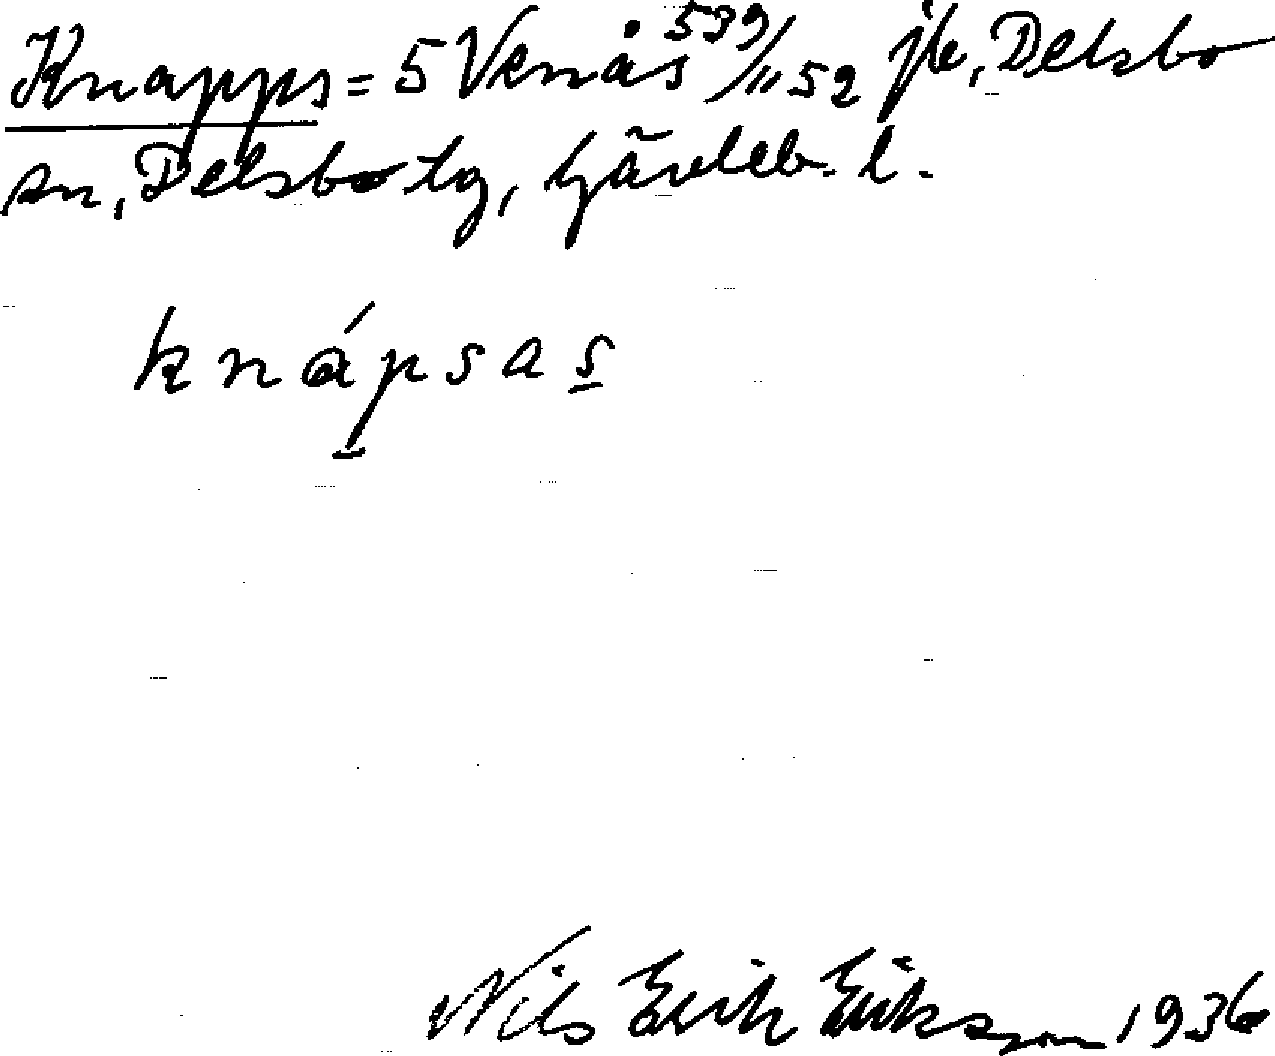 Knapps = 5 Venås 539/1152 jb, Delsbo
sn, Delsbo tg, Gävleb. l.
knápsas
Nils Erik Eriksson 1936